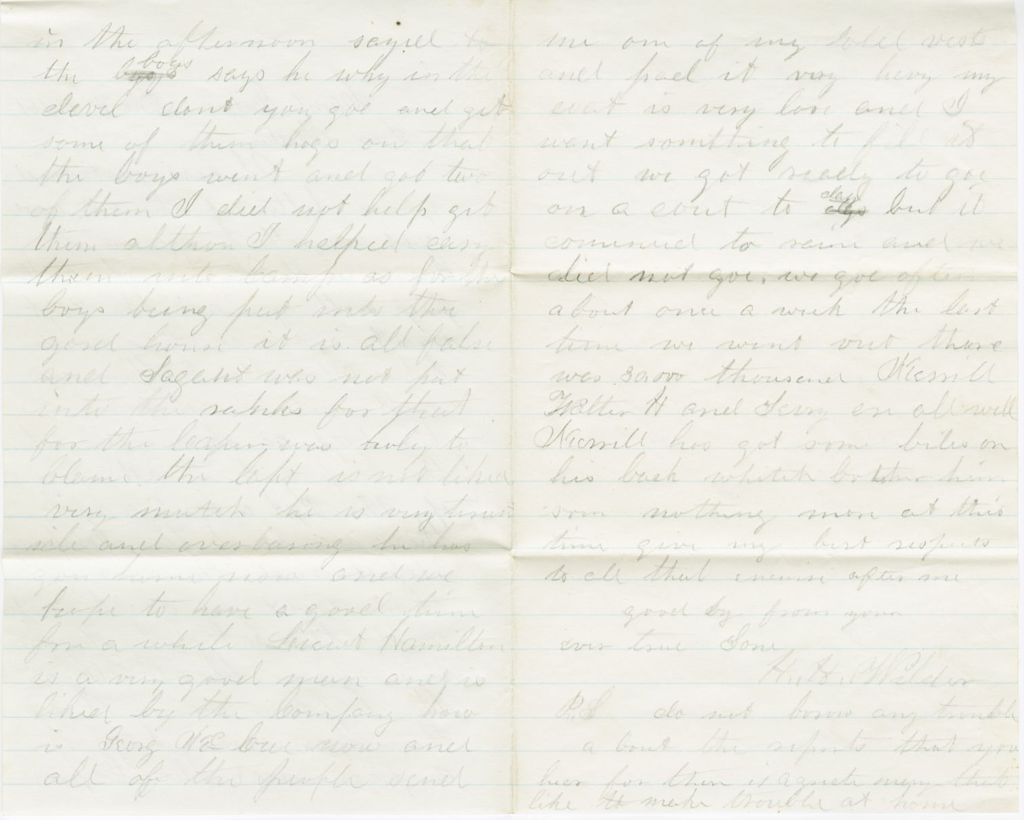 in the afternoon sayed to
the boys says he why in the
devel dont you goe and get
some of them hogs on that
the boys went and got two
of them I did not help get
them althou I helped cary
them into camp as for the
boys being put into the
gard house it is all false
and Sagent was not put
into the ranks for that
for the Capten was soly to
blame the Capt is not liked
very mutch he is very
and overbaring he has
gon home now and we
hope to have a good time
for a while Lieut Hamilton
is a very good man and is
liked by the Company how
is Georg now and
all of the people send
me one of my vests
and pad it very hevy my
coat is very lose and I
want somthing to fil it
out we got ready to goe
on a cout to day but it
comenced to rain and we
did not goe. we goe often
about once a week the last
time we went out there
was 30,000 thousand Merrill
Walter H and Jerry en all well
Merrill has got some biles on
his back whitch bother him
som nothing more at this
time give my best respects
to all that enquire after me
good by from your
ever true Sone
H. H. Wilder
P.S do not borow any trouble
a bout the reports that you
hear for ther is agreate meny that
like to make trouble at home